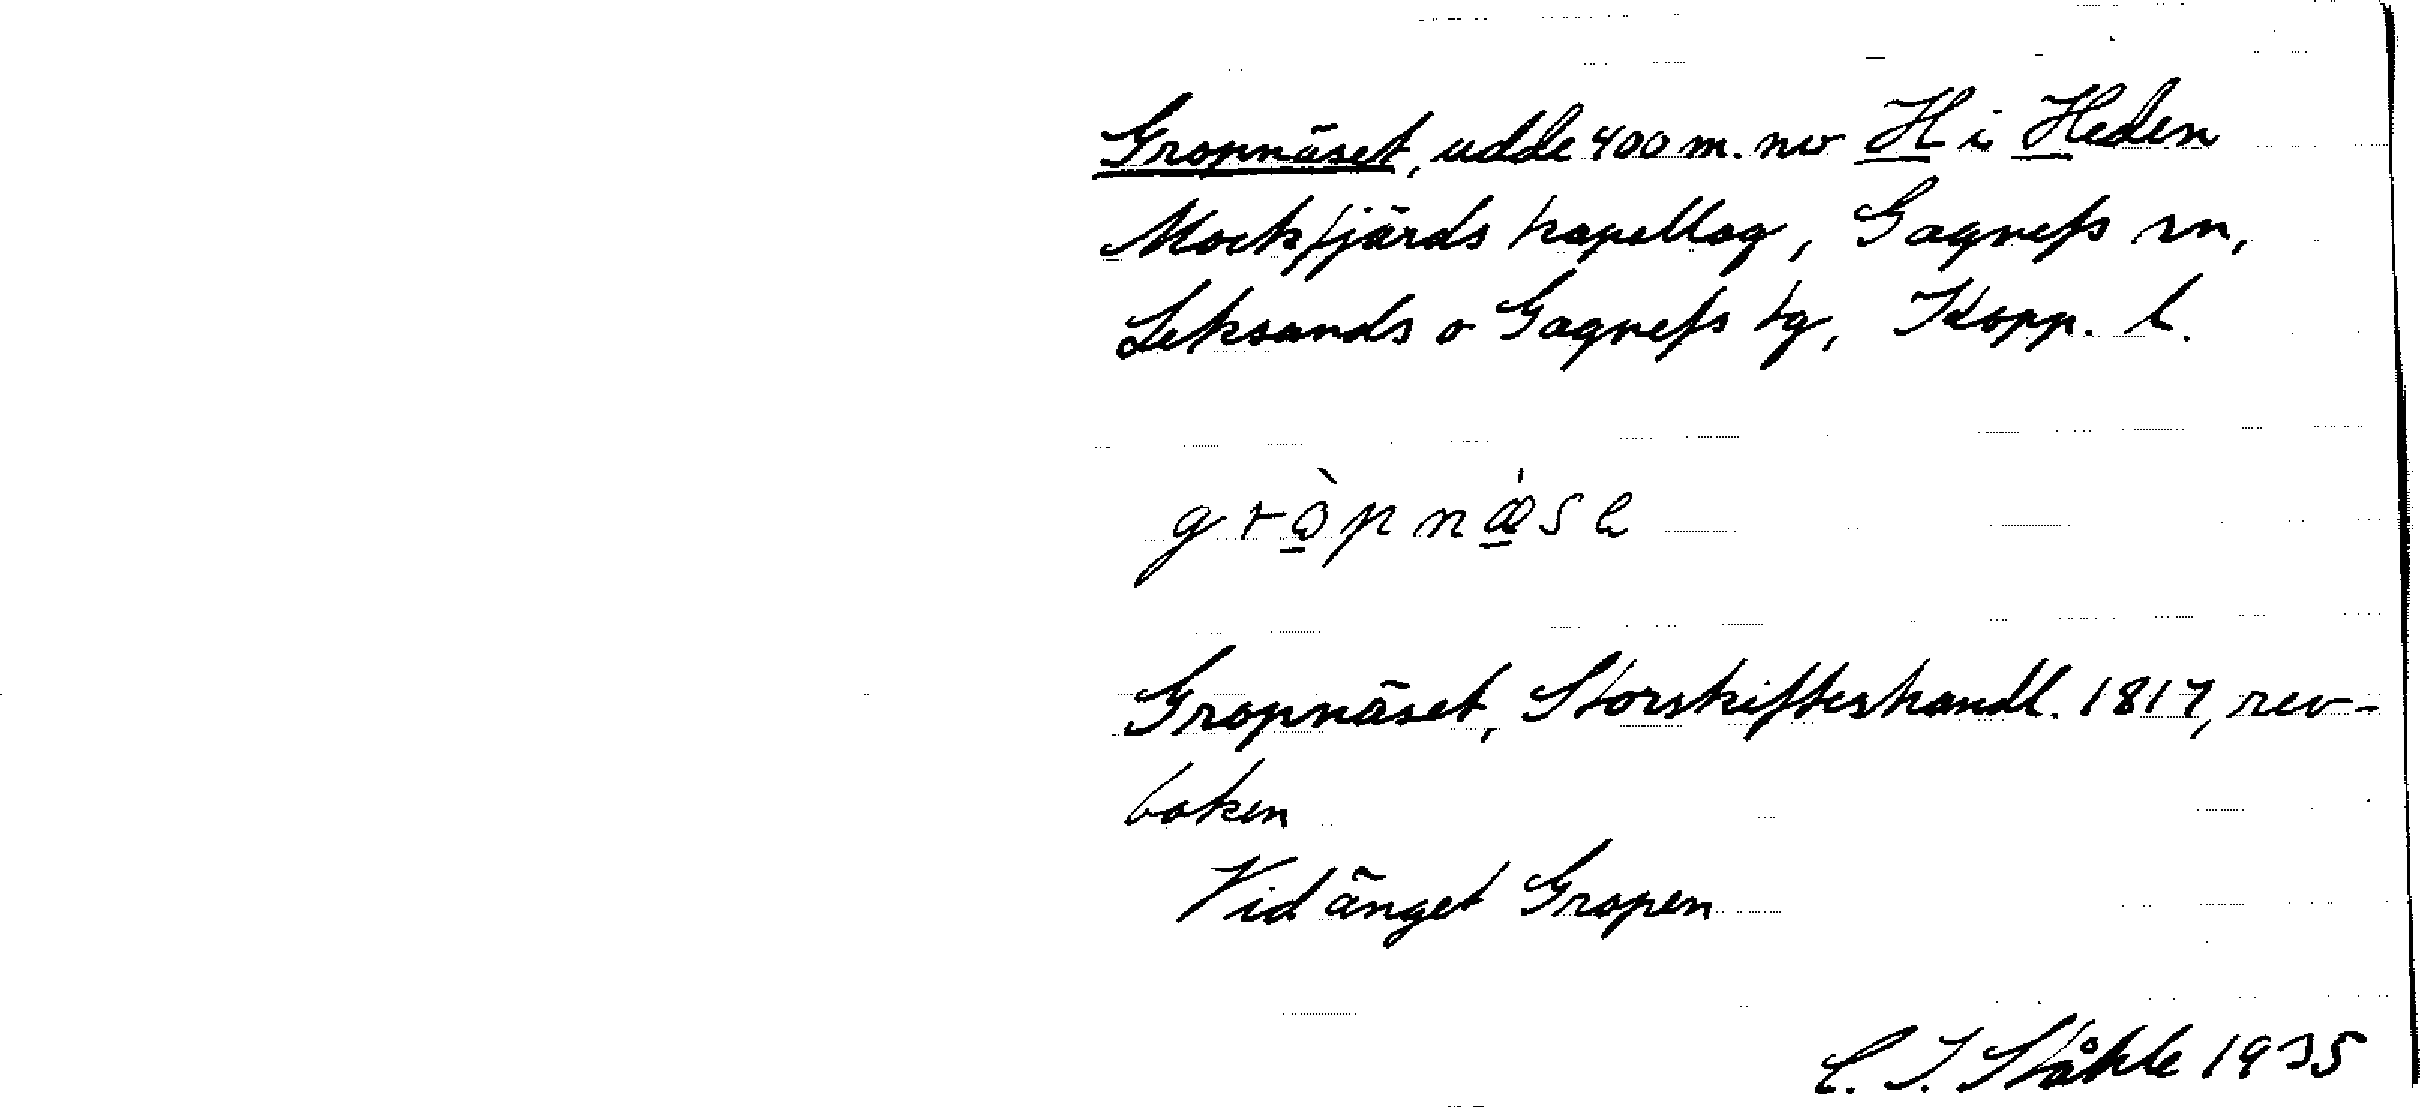 Gropnäset, udde 400 m. nv H i Heden
Mockfjärds kapellag, Gagnefs sn,
Leksands o Gagnefs tg, Kopp. l.
gròpnæ̀se
Gropnäset, Storskifteshandl. 1817, rev-
boken
Vid änget Gropen
C. I. Ståhle 1935